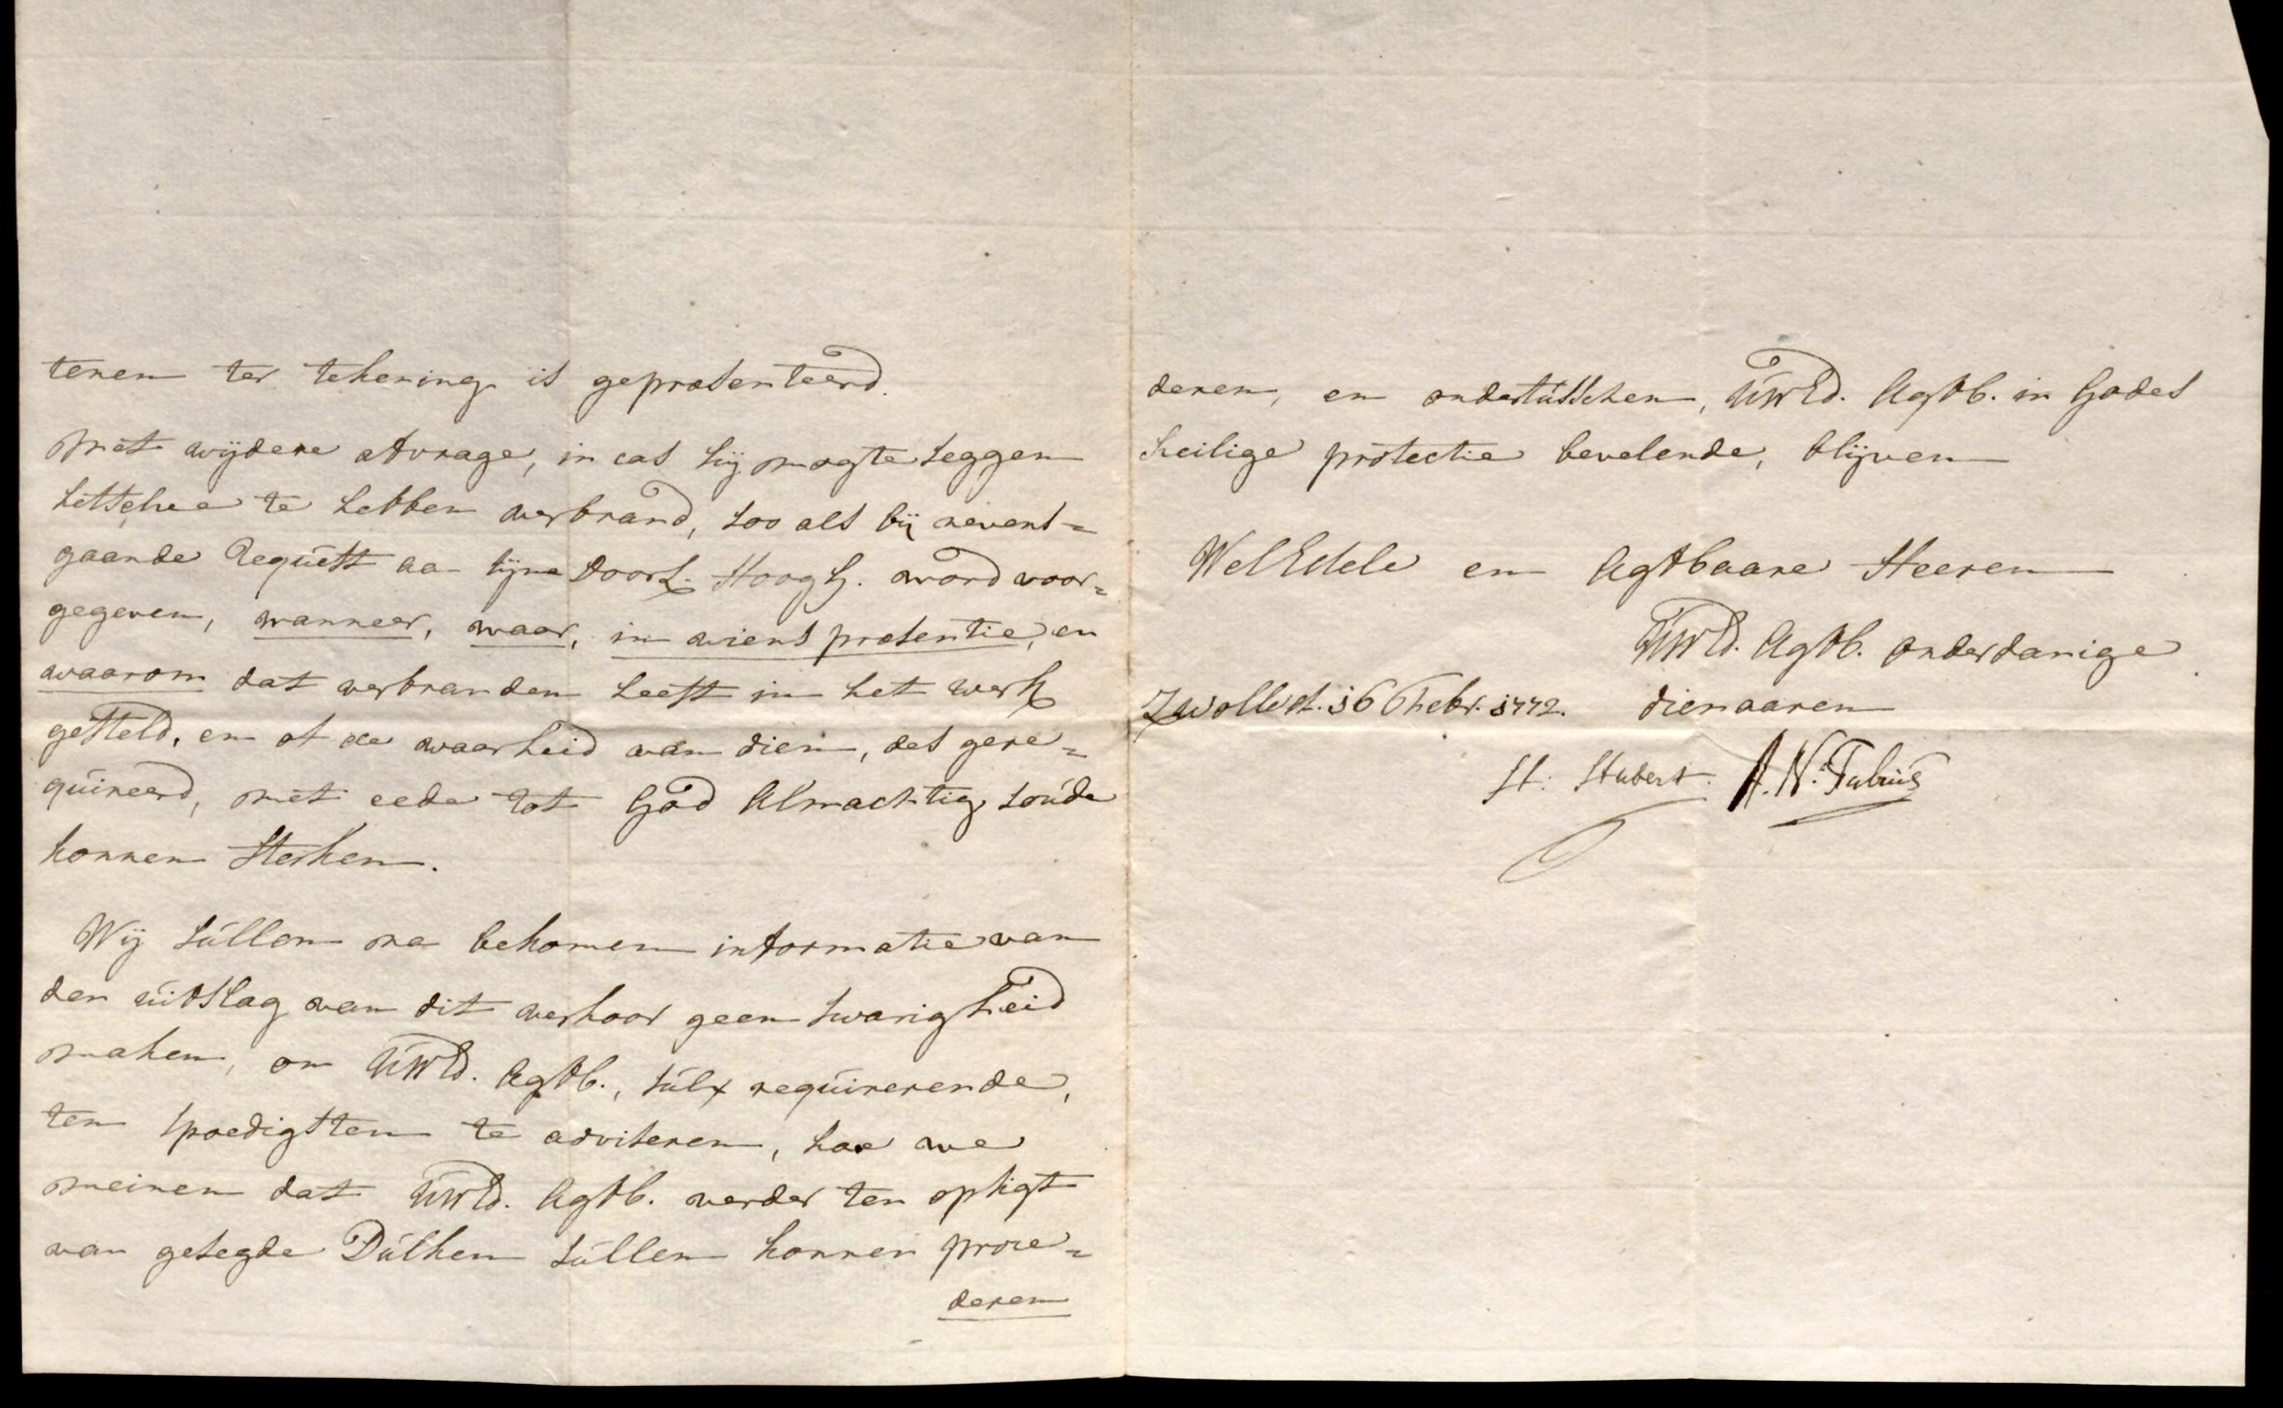 teren ter tekening is gepræsenteerd.
Met wijdere afvrage, in cas hij mogte seggen
hetselve te hebben verbrand, soo als bij nevens=
gaande Request aa sijne Doorl. Hoogh. word voor=
gegeven, wanneer, waar, in wiens præsentie, en
waarom dat verbranden heeft in het werk
gesteld, en of de waarheid van dien, des gere=
quireerd, met eede tot God Almachtig soude
konnen sterken.
Wij sullen na bekomen informatie van
den uitslag van dit verhoor geen swarigheid
maken, om UWEd. Agtb., sulx requirerende,
ten spoedigsten te adviseren, hoe we
meinen dat UWEd. Agtb. verder ten opsigt
van gesegde Dulken sullen konnen proce=
deren
deren, en ondertusschen, UWEd. Agtb. in Godes
heilige protectie bevelende, blijven
WelEdele en Agtbaare Heeren
UWEd. Agtb. onderdanige
Zwolle d. 16 Febr. 1772. dienaaren
H: Hubert. A. N. Fabius